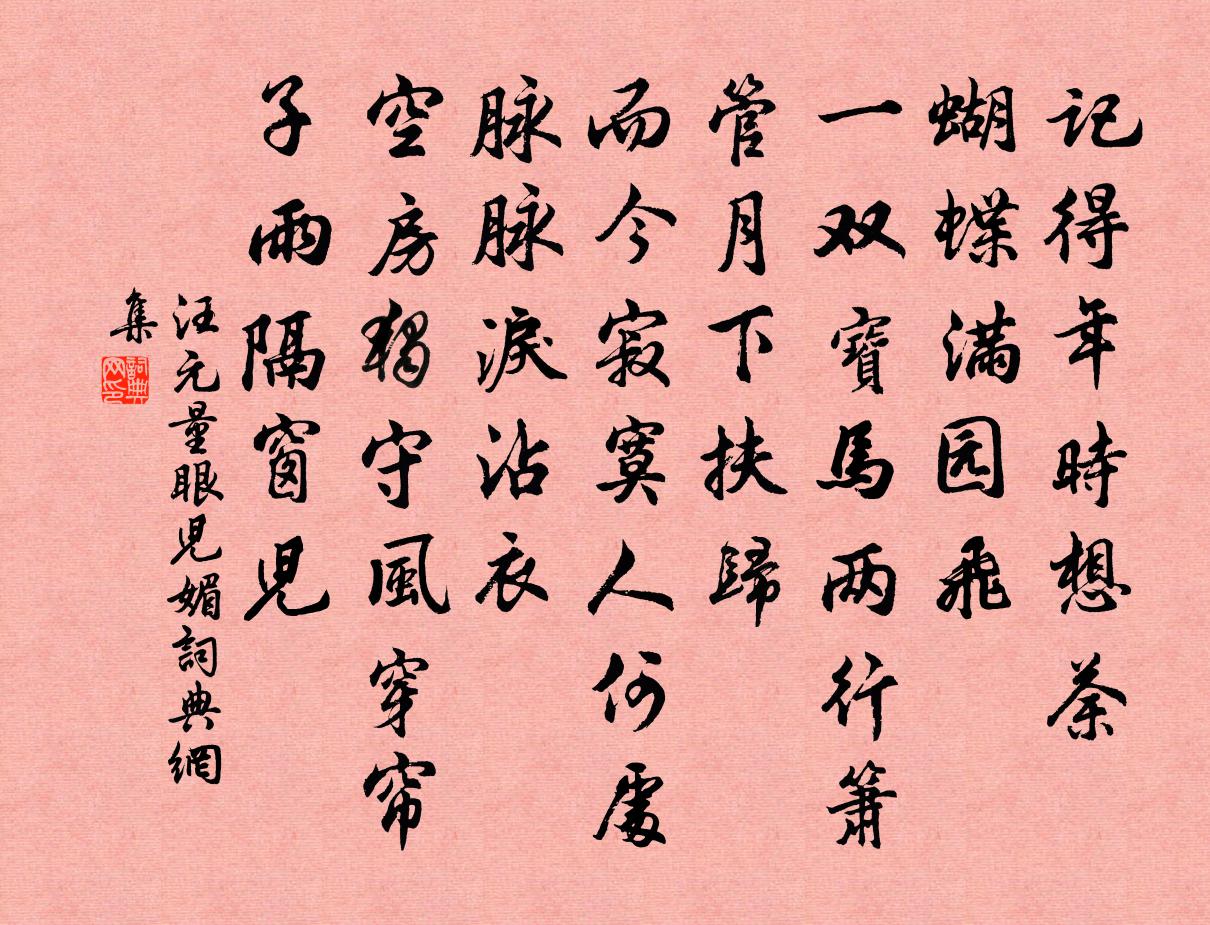 记得年時想荼
蝴蝶满园飛
一双寶馬两行簫
管月下扶歸
而今寂寞人何處
脉脉淚沾衣
空房獨守風穿帘
子雨隔窗兒
汪元量眼兒媚詞典網
集
詞典网印